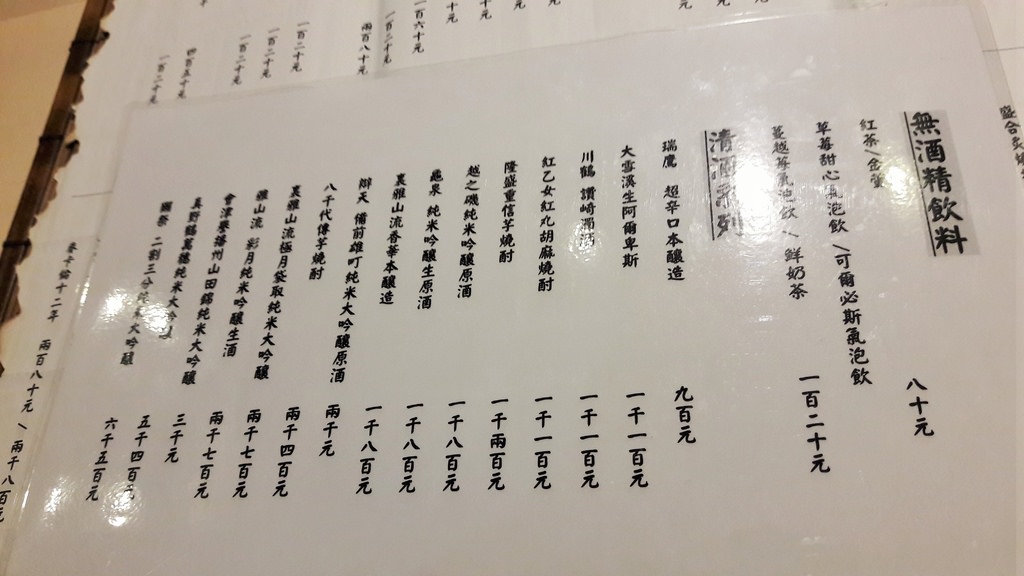 無酒精飲料
紅茶/金萱
八十元
草莓甜心氣泡飲/可爾必斯氣泡飲
蔓越莓氣泡飲/鮮奶茶
一百二十元
清酒系列
瑞鷹 超辛口本釀造
九百元
大雪溪生阿爾卑斯
一千一百元
川鶴 讚崎濁酒
一千一百元
紅乙女紅丸胡麻燒酎
一千一百元
隆盛重信芋燒酎
一千兩百元
越之磯純米吟釀原酒
一千八百元
龜泉 純米吟釀生原酒
一千八百元
裏雅山流香華本釀造
一千八百元
辯天 備前雄町純米大吟釀原酒
兩千元
八千代傳芋燒酎
兩千四百元
裏雅山流極月袋取純米大吟釀
兩千七百元
雅山流 影月純米吟釀生酒
兩千七百元
會津譽播州山田錦純米大吟釀
三千元
真野鶴萬穗純米大吟釀
五千四百元
獺祭 二割三分純米大吟釀
六千五百元
一百六十元
一百二十元
兩百八十元
一百二十元
一百二十元
一百二十元
四百五十元
一百二十元
兩百八十元/兩千八百元